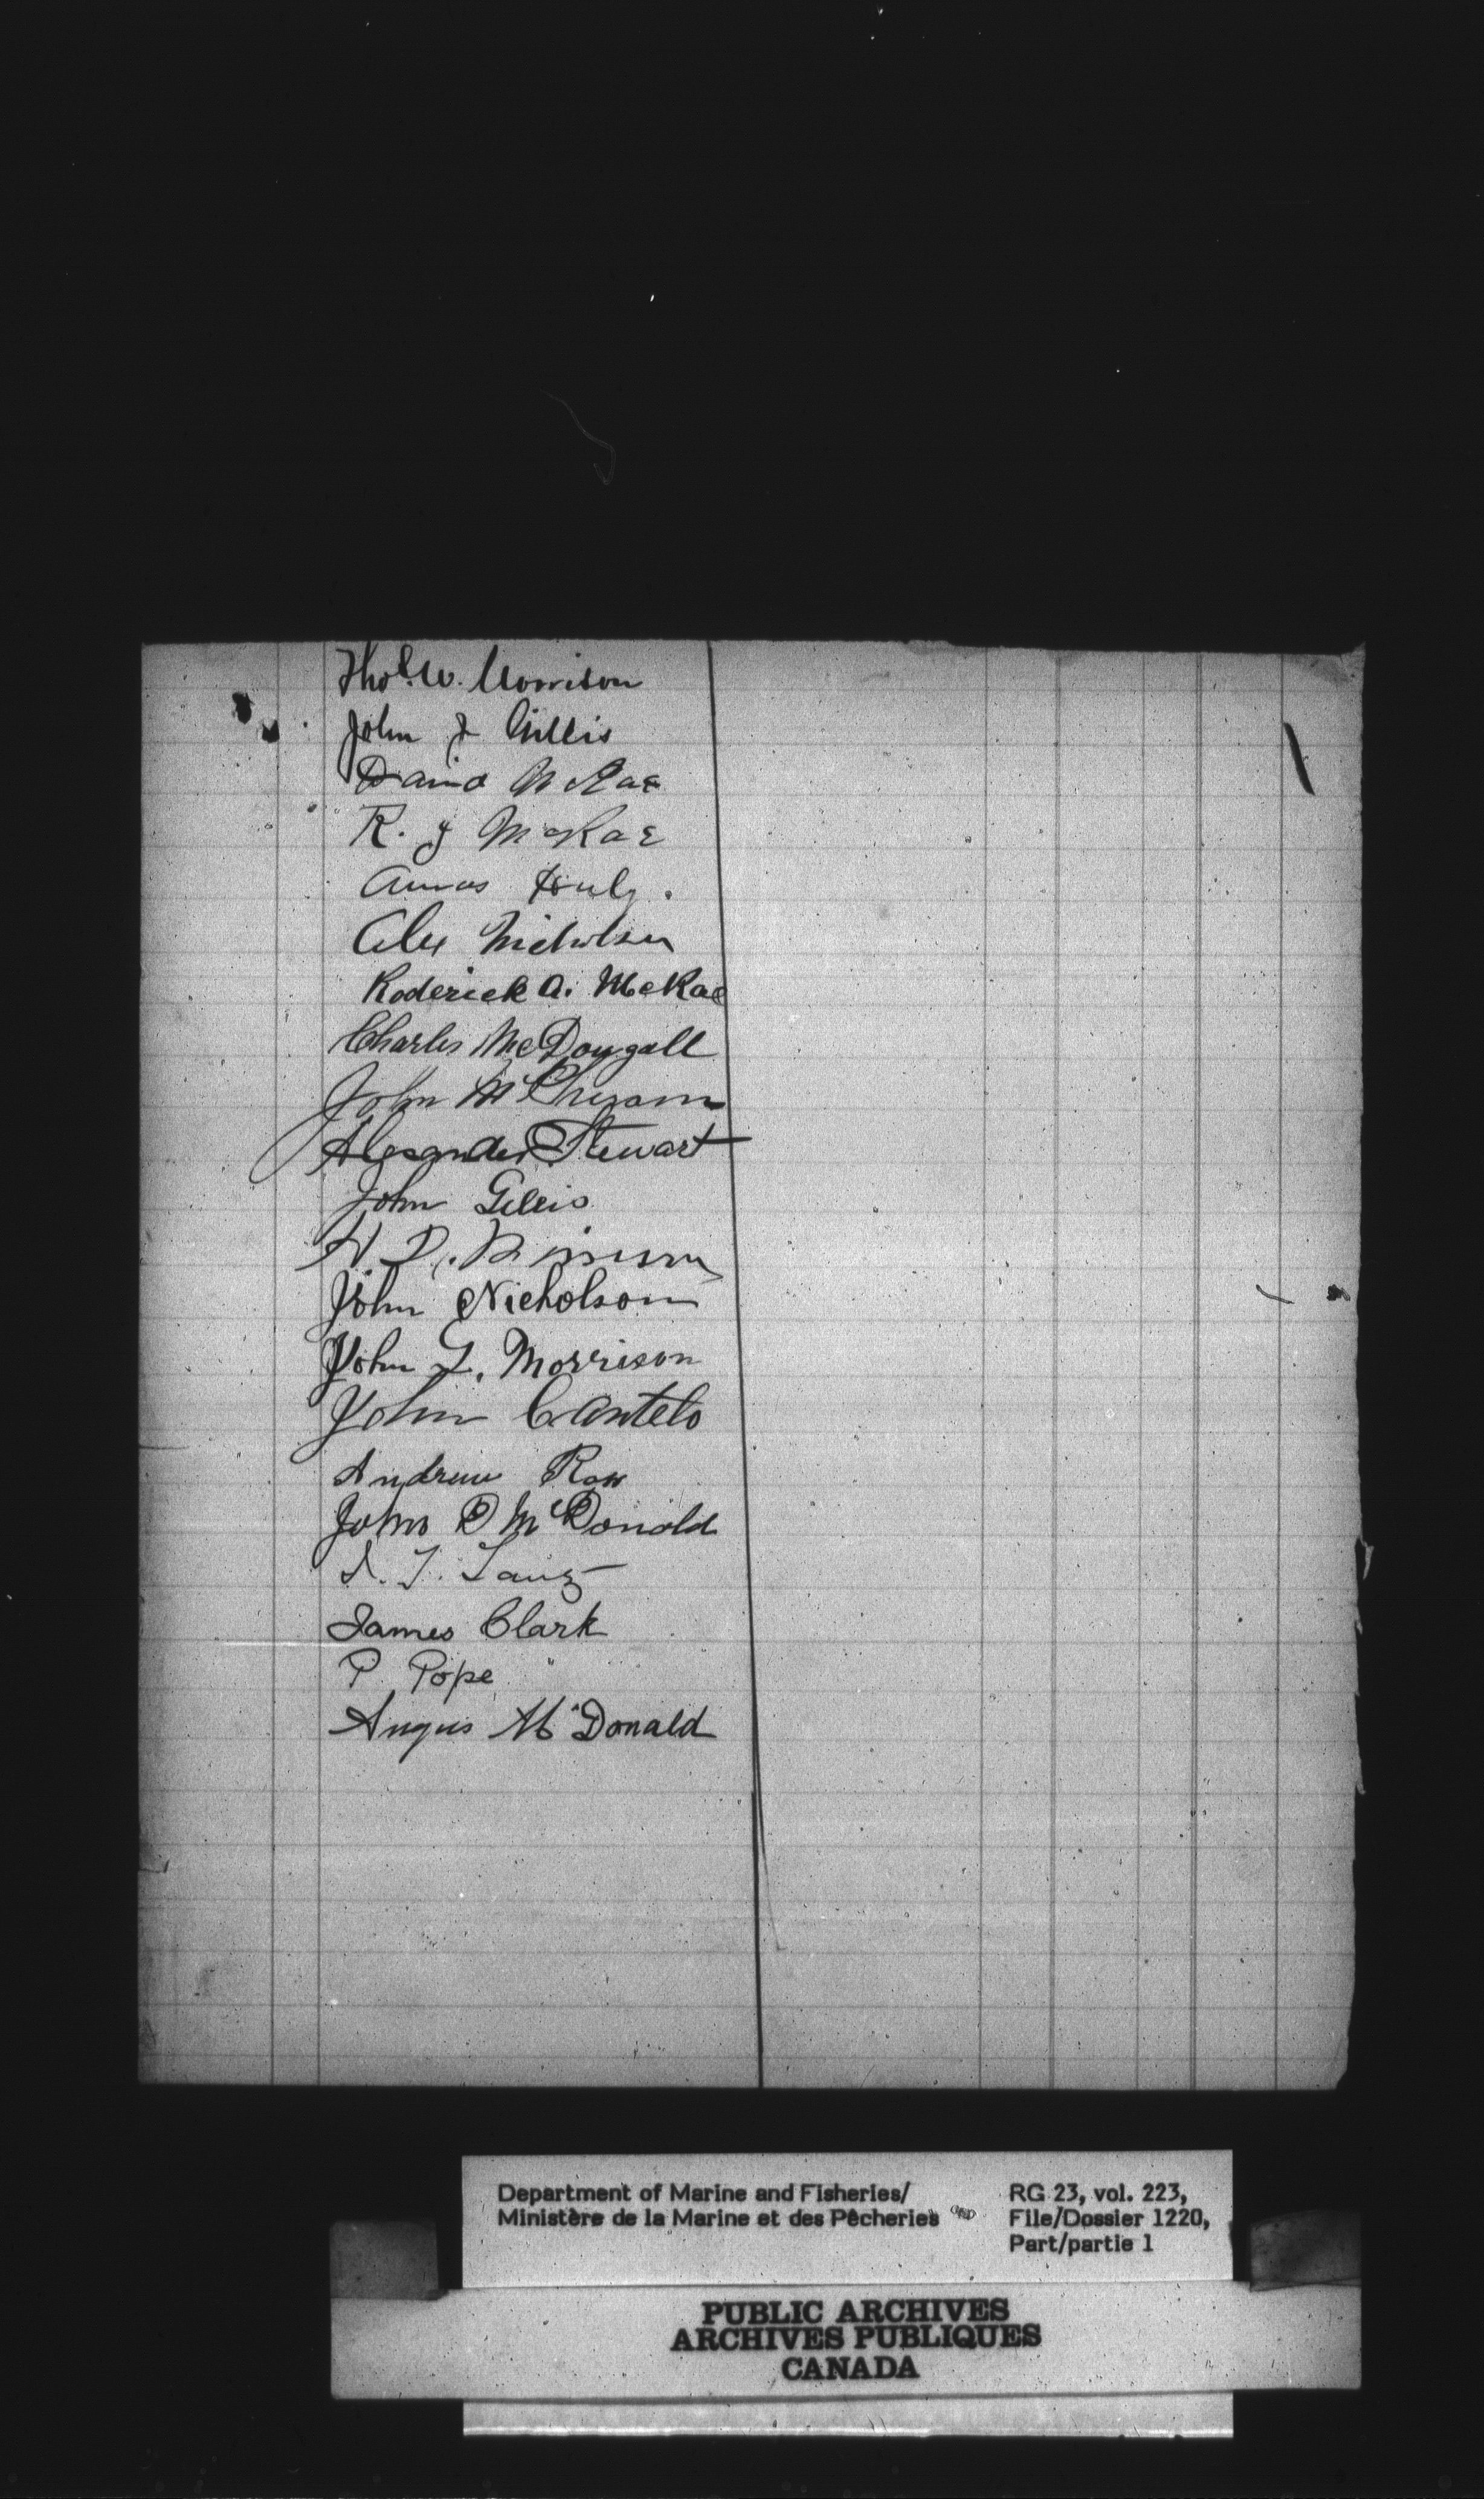 Thos. W. Morrison
John J Gillis
David McRae
R. J McRae
Amos
Alex Nicholson
Roderick A. McRae
Charles McDougall
John
Alexander Stewart
John Gillis
John Nicholson
John L. Morrison
John Cantelo
Andrew Ross
John D McDonald
James Clark
P. Pope
Angus McDonald
Department of Marine and Fisheries/
Ministère de la Marine et des Pêcheries
RG 23, vol. 223,
File/Dossier 1220,
Part/partie 1
PUBLIC ARCHIVES
ARCHIVES PUBLIQUES
CANADA